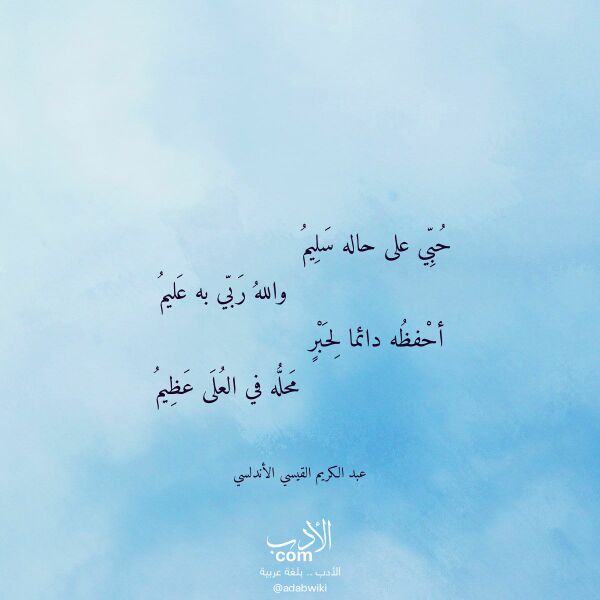 حُبِّي على حاله سَلِيمُ
واللهُ رَبّي به عَليمُ
أحْفظُه دائما لِحَبْرٍ
مَحلُّه في العُلَى عَظِيمُ
عبد الكريم القيسي الأندلسي
الأدب
com
الأدب .. بلغة عربية
@adabwiki